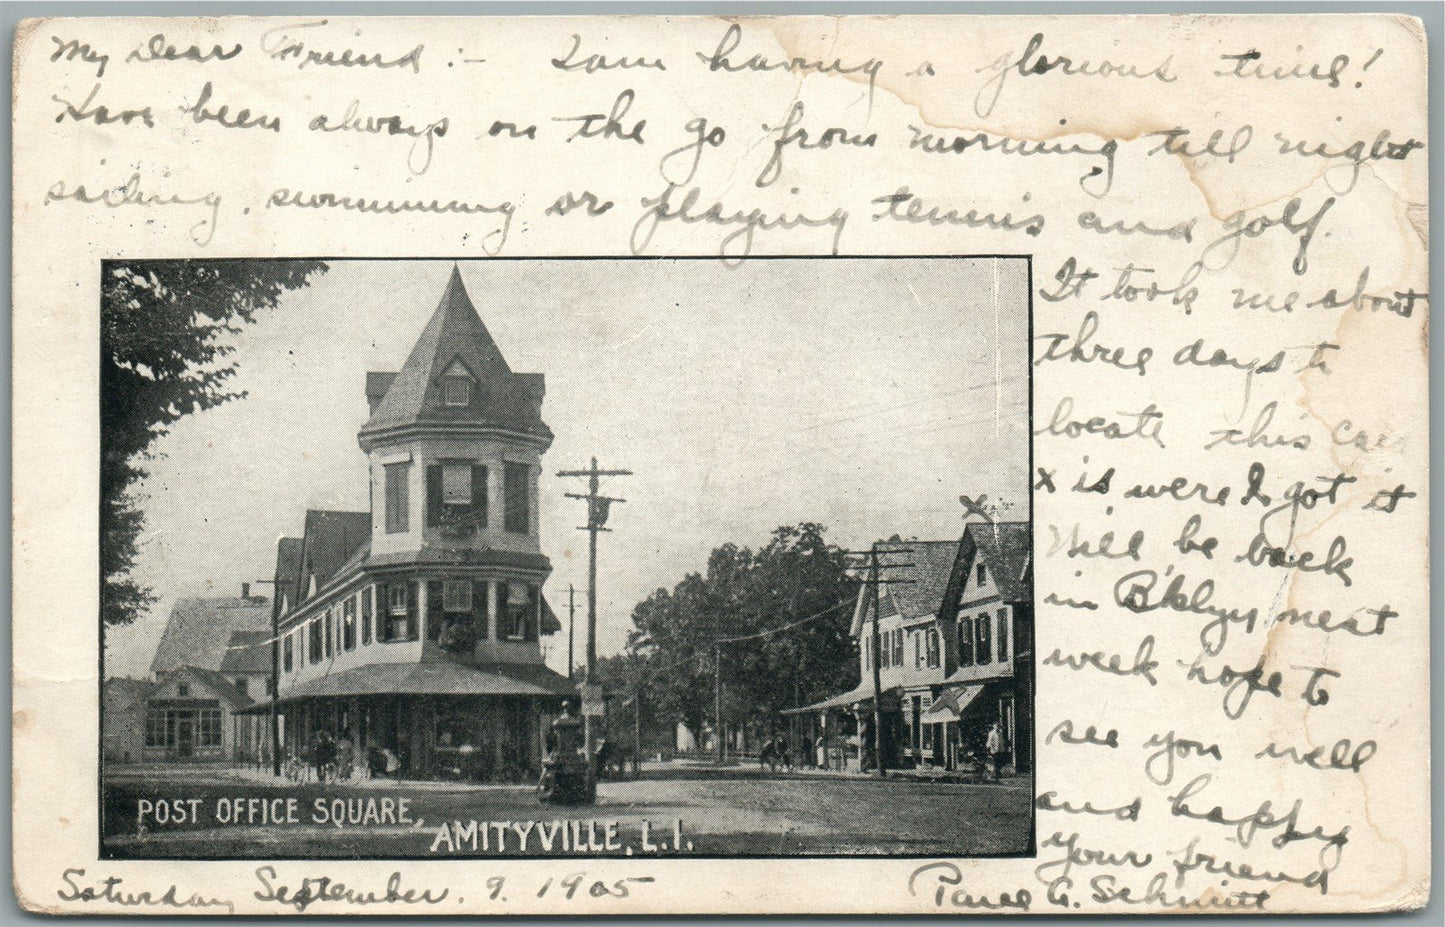 My Dear Friend:- I am having a glorious time!
Have been always on the go from morning till night
sailing, swimming or playing tennis and golf.
It took me about
three days to
locate this card
x is were I got it
Will be back
in B'klyn next
week hope to
see you well
and happy
Your friend
G. Schmitt
x
POST OFFICE SQUARE,
AMITYVILLE, L.I.
Saturday September. 9. 1905